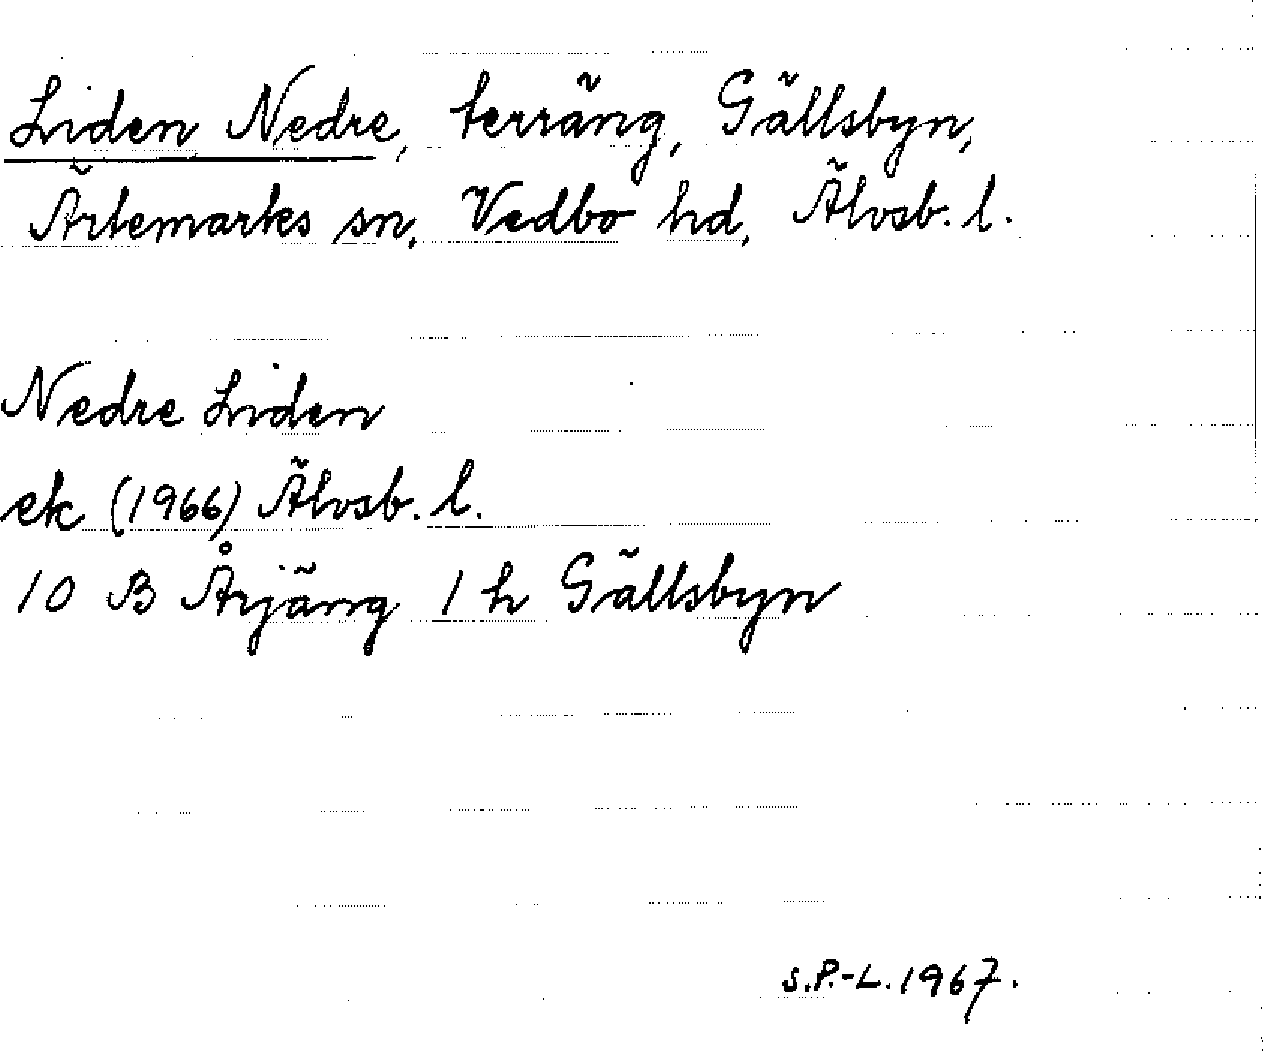 Liden Nedre, terräng, Gällsbyn,
Ärtemarks sn, Vedbo hd, Älvsb. l.
Nedre Liden
ek (1966) Älvsb. l.
10 B Årjäng 1 h Gällsbyn
S.P.-L. 1967.